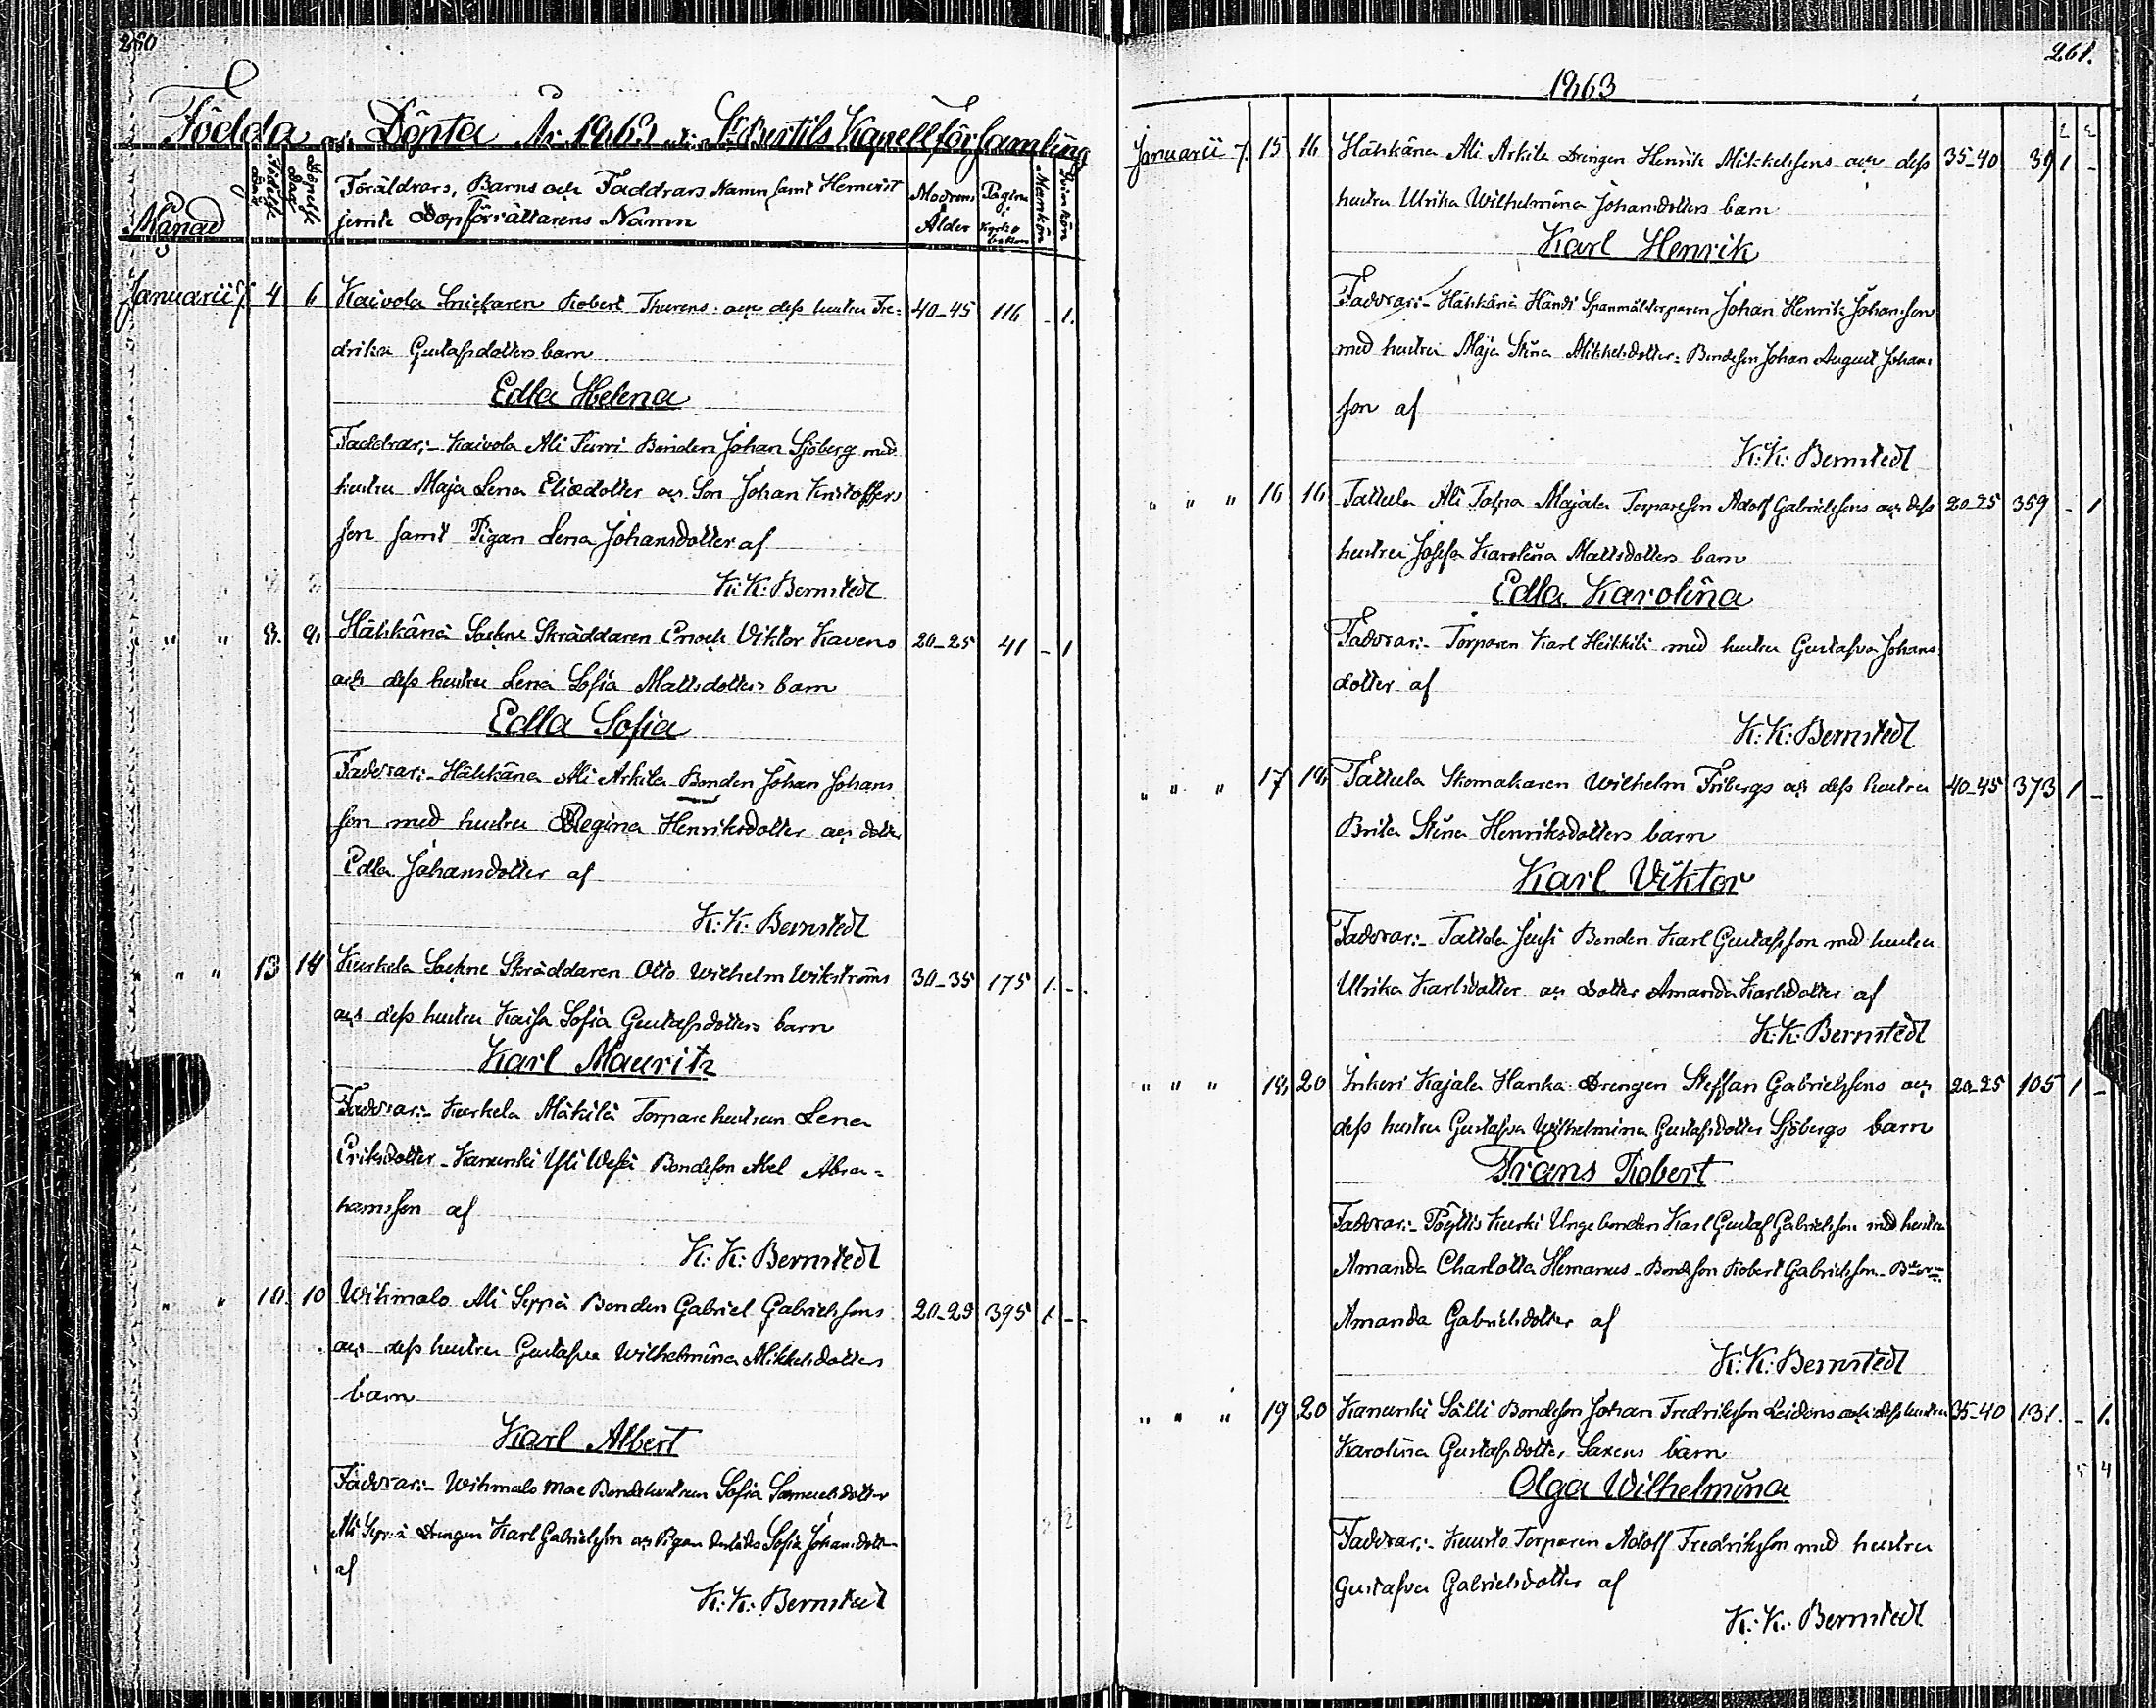 260
Födda och Döpta År 1863 uti S:t Bertils Kapellförsamling
Månad
Födelse Dag
Döpelse Dag
Föräldrars, Barns och Faddrars Namn samt Hemvist
jemte Dopförrättarens Namn
Modrens Ålder
Pagina i Kyrkoboken
Mankön
Qvinkön
Januarii 4 6 Kaivola Snickaren Robert Thurens och dess hustru Fre- 40-45 116 - 1.
drika Gustafsdotters barn
Edla Helena
Faddrar:- Kaivola Ali Turri Bonden Johan Sjöberg med
hustru Maja Lena Eliædotter och Son Johan Kristoffers
son samt Pigan Lena Johansdotter af
K:K: Bernstedt
" " 8. 9. Hähkänä Sockne Skräddaren Enoch Viktor Kavens 20-25 41 - 1
och dess hustru Lena Sofia Mattsdotters barn
Edla Sofia
Faddrar:- Hähkänä Ali Arkila Bonden Johan Johans
son med hustru Regina Henriksdotter och dotter
Edla Johansdotter af
K:K: Bernstedt
" " " 13 14 Kurkela Sockne Skräddaren Otto Wilhelm Wikströms 30-35 175 1. -
och dess hustru Kaisa Sofia Gustafsdotters barn
Karl Mauritz
Faddrar:- Kurkela Mäkilä Torpare hustrun Lena
Eriksdotter - Kanunki Yli Wesi Bondeson Abel Abra-
hamsson af
K: K: Bernstedt
" " 10 Wihmalo Ali Seppä Bonden Gabriel Gabrielssons 20-25 395 1 -
och dess hustru Gustafva Wilhelmina Mikkelsdotters
barn
Karl Albert
Faddrar:- Wihmalo Bondehustrun Sofia Samuelsdotter
Ali Seppä Drengen Karl Gabrielsson och Pigan Sofia Johansdotter
af
K: K: Bernstedt
261.
1863
Januarii 15 16 Hähkänä Ali Arkila Drengen Henrik Mikkelssons och dess 35-40 39 1 -
hustru Ulrika Wilhelmina Johansdotters barn
Karl Henrik
Faddrar:- Hähkänä Händi Spannmålstorparen Johan Henrik Johansson
med hustru Maja Stina Mikkelsdotter: Bondeson Johan August Johans
son af
K: K: Bernstedt
" " " 16 16 Tattula Ali Torparesson Adolf Gabrielssons och dess 20-25 359 - 1
hustru Josefa Karolina Mattsdotters barn
Edla Karolina
Faddrar:- Torparen Karl Heikkilä med hustru Gustafva Johans
dotter af
K: K: Bernstedt
" " " 17 18 Tattula Skomakaren Wilhelm Fribergs och dess hustru 40-45 373 1 -
Brita Stina Henriksdotters barn
Karl Viktor
Faddrar:- Tattula Bonden Karl Gustafsson med hustru
Ulrika Karlsdotter och Dotter Amanda Karlsdotter af
K: K: Bernstedt
" " " 18 20 Inkeri Kajala Hanka Drengen Steffan Gabrielssons och 20-25 105 1 -
dess hustru Gustafva Wilhelmina Gustafsdotter Sjöbergs barn
Frans Robert
Faddrar:- Pöytis Kurki Unge bonden Karl Gustaf Gabrielsson med hustru
Amanda Charlotta Hemanus - Bondeson Robert Gabrielsson -
Amanda Gabrielsdotter af
K: K: Bernstedt
" " " 19 20 Kanunki Sälli Bondeson Johan Fredriksson Leidens och dess hustru 35-40 131. - 1.
Karolina Gustafsdotter Saxens barn
Olga Wilhelmina
Faddrar:- Torparen Adolf Fredriksson med hustru
Gustafva Gabrielsdotter af
K: K: Bernstedt